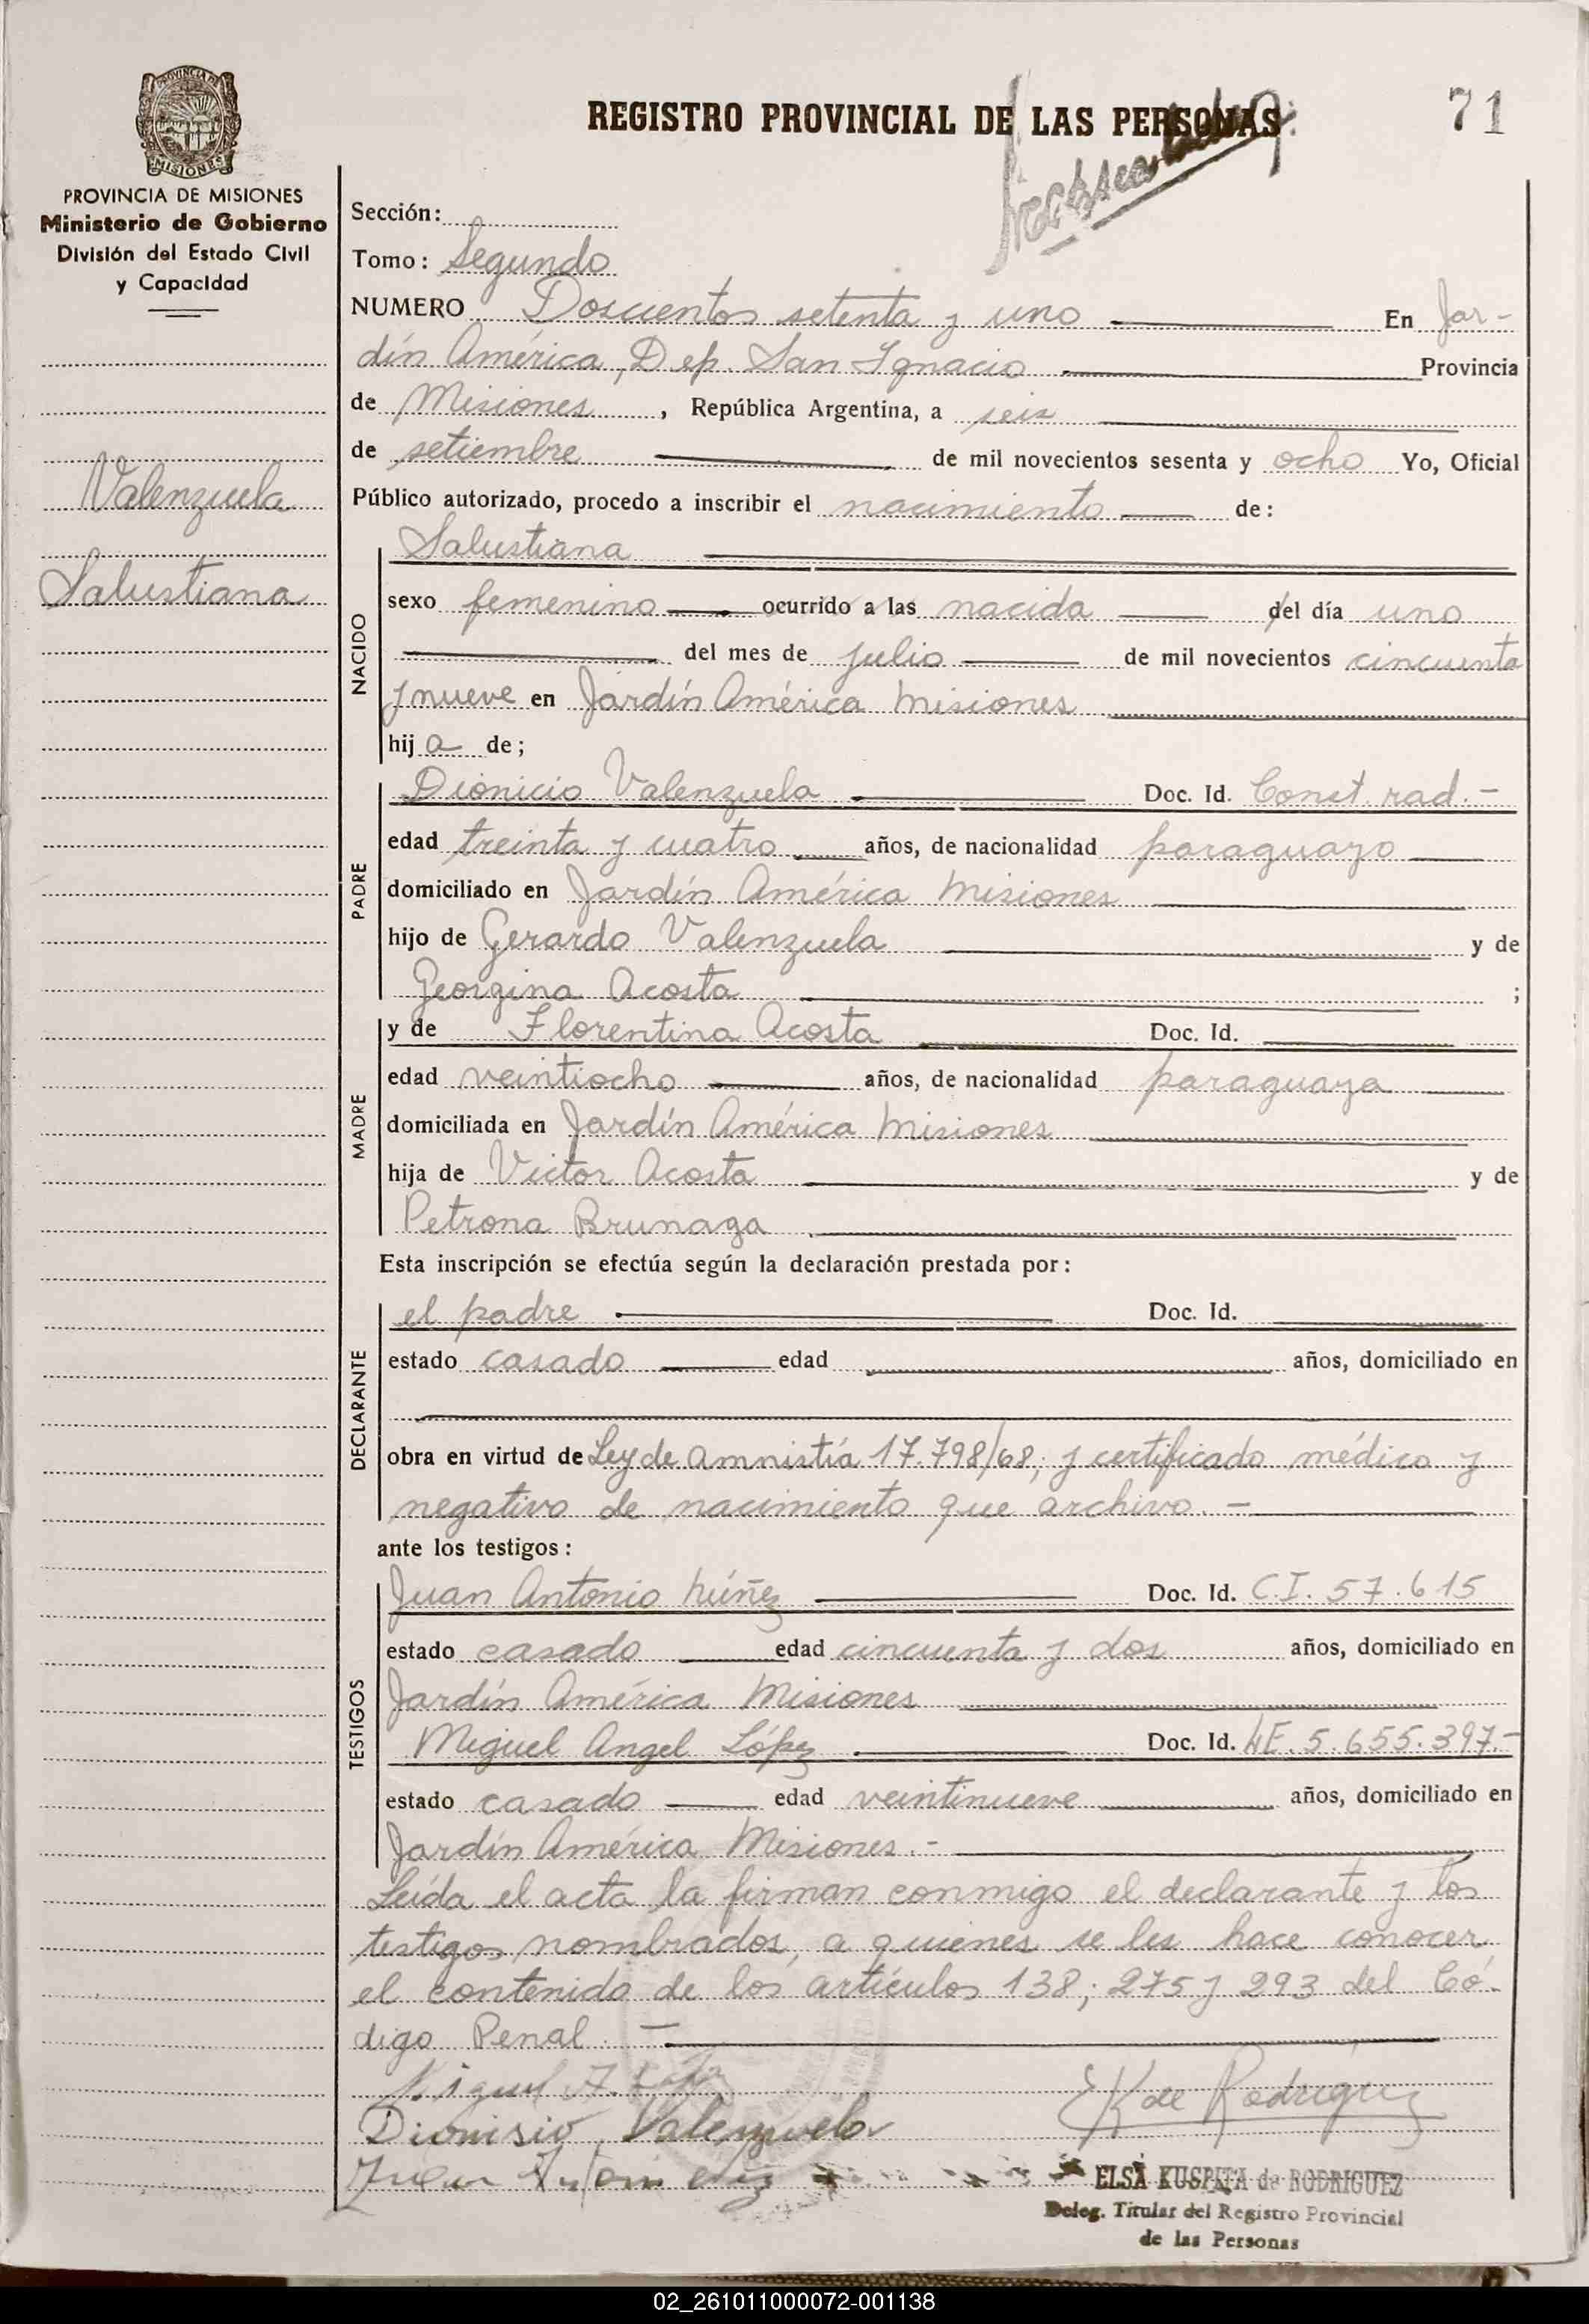 REGISTRO PROVINCIAL DE LAS PERSONAS
71
PROVINCIA DE
MISIONES
PROVINCIA DE MISIONES
Ministerio de Gobierno
División del Estado Civil
y Capacidad
Valenzuela
Salustiana
Sección:
Tomo: Segundo
NUMERO Doscientos setenta y uno En Jar-
dín América, Dep. San Ignacio Provincia
de Misiones, República Argentina, a seis
de setiembre de mil novecientos sesenta y ocho Yo, Oficial
Público autorizado, procedo a inscribir el nacimiento de:
NACIDO
Salustiana
sexo femenino ocurrido a las nacida del día uno
del mes de julio de mil novecientos cincuenta
y nueve en Jardín América Misiones
hij a de;
PADRE
Dionicio Valenzuela Doc. Id. Const. rad.-
edad treinta y cuatro años, de nacionalidad paraguayo
domiciliado en Jardín América Misiones
hijo de Gerardo Valenzuela y de
Georgina Acosta ;
MADRE
y de Florentina Acosta Doc. Id.
edad veintiocho años, de nacionalidad paraguaya
domiciliada en Jardín América Misiones
hija de Victor Acosta y de
Petrona Brunaga
Esta inscripción se efectúa según la declaración prestada por:
DECLARANTE
el padre Doc. Id.
estado casado edad años, domiciliado en
obra en virtud de Ley de amnistía 17.798/68; y certificado médico y
negativo de nacimiento que archivo.-
ante los testigos:
TESTIGOS
Juan Antonio Núñez Doc. Id. C.I. 57.615
estado casado edad cincuenta y dos años, domiciliado en
Jardín América Misiones
Miguel Angel López Doc. Id. LE. 5.655.397.-
estado casado edad veintinueve años, domiciliado en
Jardín América Misiones.-
Leída el acta la firman conmigo el declarante y los
testigos nombrados, a quienes se les hace conocer
el contenido de los artículos 138; 275 y 293 del Có-
digo Penal.-
Miguel A. López
Dionisio Valenzuela
EK de Rodriguez
Juan Antonio
ELSA KUSPITA de RODRIGUEZ
Deleg. Titular del Registro Provincial
de las Personas
02_261011000072-001138